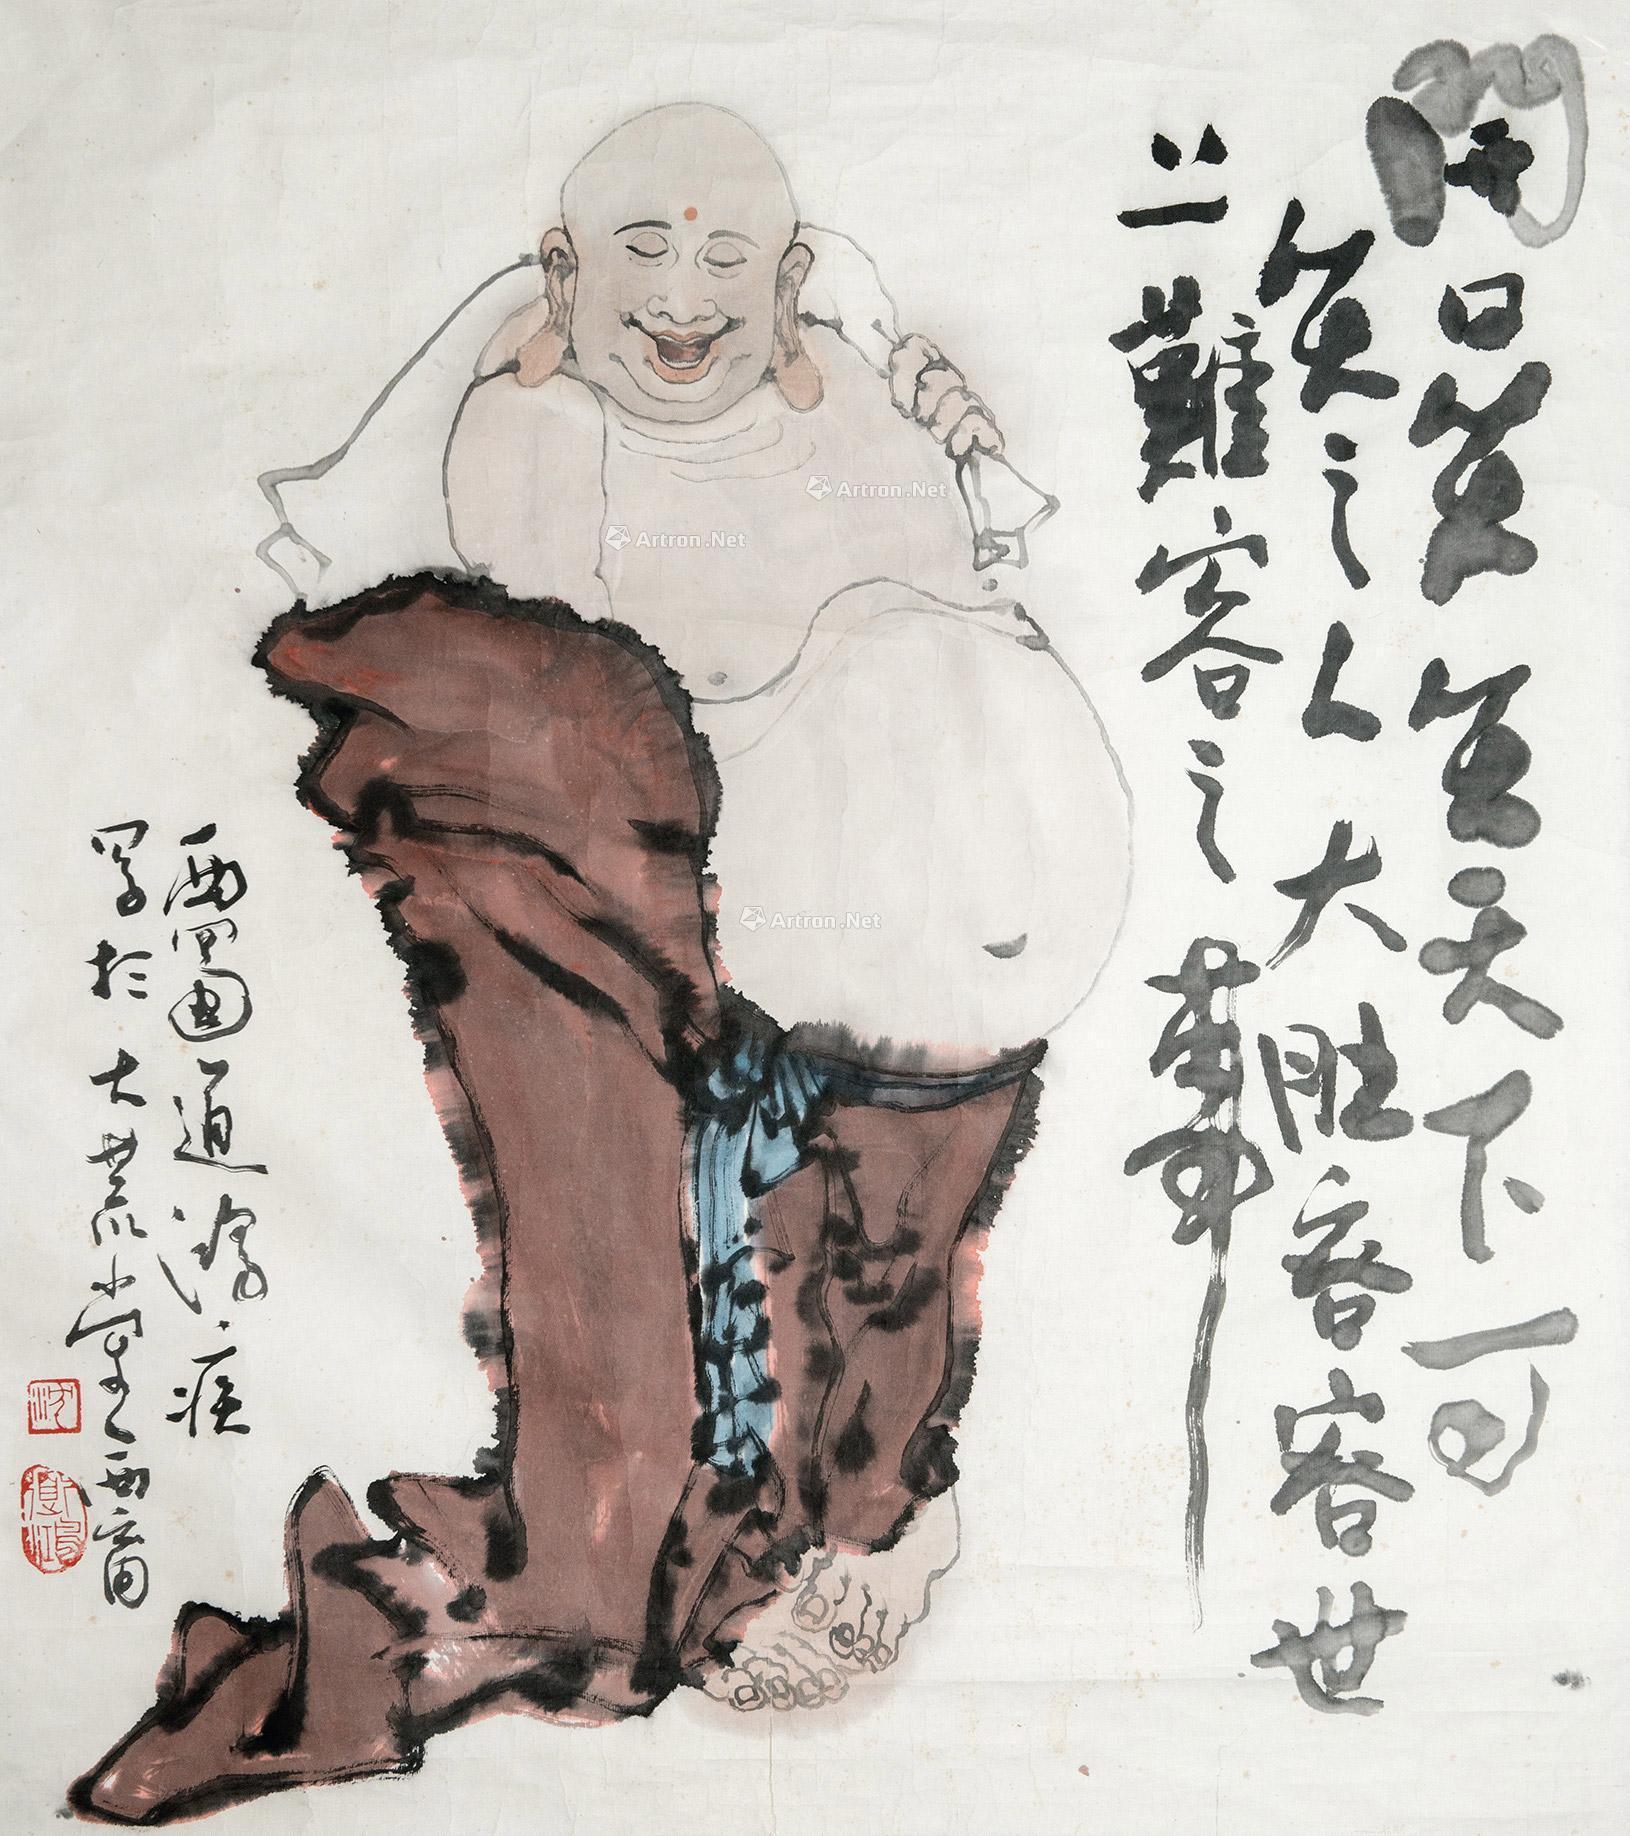 開口笑笑天下可
笑之人大肚容容世
上難容之事
西園道濟疾
写於大荒小堂之西窗
沈
Artron.Net
Artron.Net
Artron.Net